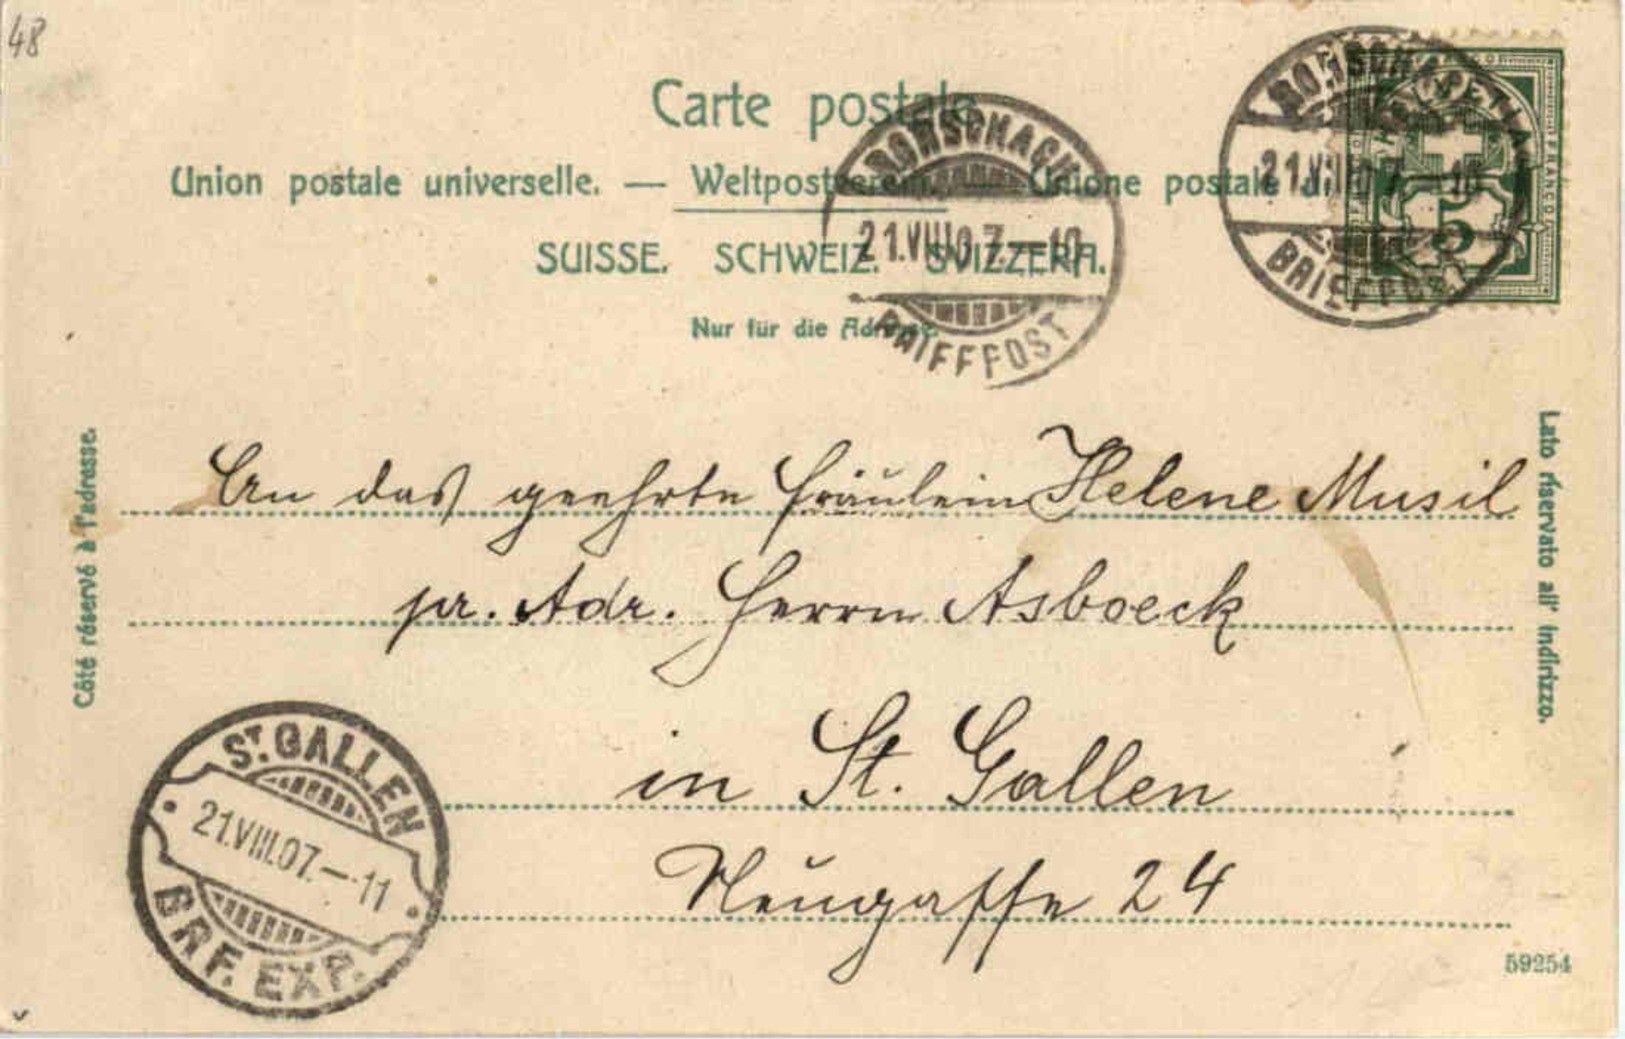 48
Carte postale
Union postale universelle. — Weltpostverein. — Unione postale
SUISSE. SCHWEIZ. SVIZZERA.
Nur für die Adresse.
RORSCHACH
21.VIII.07.—10
BRIEFPOST
RORSCHACH
21.VIII.07.—10
BRIEFPOST
HELVETIA
FRANCO
5
Côté réservé à l'adresse.
Lato riservato all' indirizzo.
An das geehrte Fräulein Helene Musil
pr. Adr. Herrn Asboeck
in St. Gallen
Neugasse 24
ST. GALLEN
21.VIII.07.—11
BRF. EXP.
59254